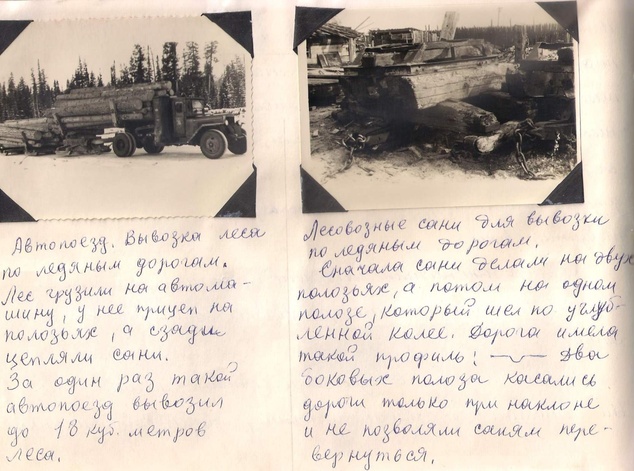 Автопоезд. Вывозка леса
по ледяным дорогам.
Лес грузили на автома-
шину, у нее прицеп на
полозьях, а сзади
цепляли сани.
За один раз такой
автопоезд вывозил
до 18 куб. метров
леса.
Лесовозные сани для вывозки
по ледяным дорогам.
Сначала сани делали на двух
полозьях, а потом на одном
полозе, который шел по углуб-
ленной колее. Дорога имела
такой профиль: Два
боковых полоза касались
дороги только при наклоне
и не позволяли саням пере-
вернуться.